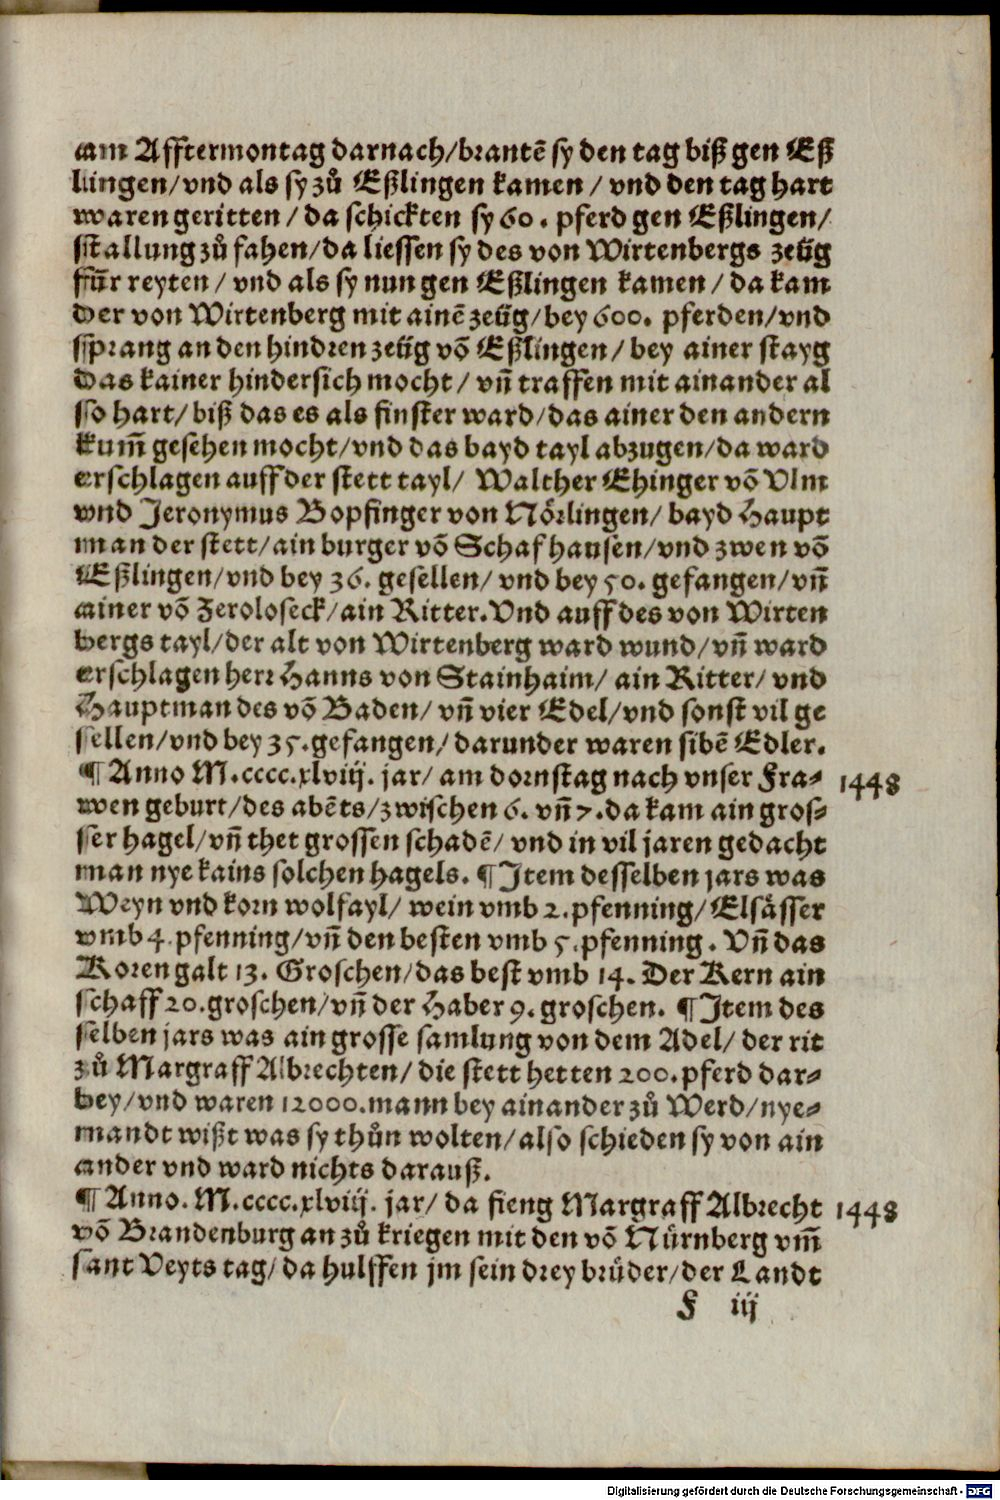 am Afftermontag darnach/brantē sy den tag biß gen Eß
lingen/vnd als sy zů Eßlingen kamen / vnd den tag hart
waren geritten / da schickten sy 60. pferd gen Eßlingen/
stallung zů fahen/da liessen sy des von Wirtenbergs zeüg
für reyten / vnd als sy nun gen Eßlingen kamen / da kam
der von Wirtenberg mit ainē zeüg/bey 600. pferden/vnd
sprang an den hindren zeüg vō Eßlingen/ bey ainer stayg
das kainer hindersich mocht / vñ traffen mit ainander al
so hart/ biß das es als finster ward/das ainer den andern
kum̄ gesehen mocht/vnd das bayd tayl abzugen/da ward
erschlagen auff der stett tayl/ Walther Ehinger vō Vlm
vnd Jeronymus Bopfinger von Nörlingen/ bayd Haupt
man der stett/ain burger vō Schafhausen/vnd zwen vō
Eßlingen/vnd bey 36. gesellen/ vnd bey 50. gefangen/vñ
ainer vō Zeroloseck/ain Ritter. Vnd auff des von Wirten
bergs tayl/der alt von Wirtenberg ward wund/vñ ward
erschlagen herr Hanns von Stainhaim/ ain Ritter/ vnd
Hauptman des vō Baden/ vñ vier Edel/vnd sonst vil ge
sellen/vnd bey 35.gefangen/ darunder waren sibē Edler.
¶ Anno M.cccc.xlviij. jar/ am dornstag nach vnser Fra- 1448
wen geburt/des abēts/zwischen 6. vñ 7.da kam ain gros-
ser hagel/vñ thet grossen schadē/ vnd in vil jaren gedacht
man nye kains solchen hagels. ¶ Item desselben jars was
Weyn vnd korn wolfayl/ wein vmb 2.pfenning/Elsässer
vmb 4.pfenning/vñ den besten vmb 5.pfenning. Vñ das
Koren galt 13. Groschen/das best vmb 14. Der Kern ain
schaff 20.groschen/vñ der Haber 9. groschen. ¶ Item des
selben jars was ain grosse samlung von dem Adel/ der rit
zů Margraff Albrechten/ die stett hetten 200.pferd dar-
bey/vnd waren 12000.mann bey ainander zů Werd/nye-
mandt wißt was sy thůn wolten/also schieden sy von ain
ander vnd ward nichts darauß.
¶ Anno. M.cccc.xlviij. jar/ da fieng Margraff Albrecht 1448
vō Brandenburg an zů kriegen mit den vō Nürnberg vm̄
sant Veyts tag/da hulffen jm sein drey brüder/der Landt
F iij
Digitalisierung gefördert durch die Deutsche Forschungsgemeinschaft - DFG